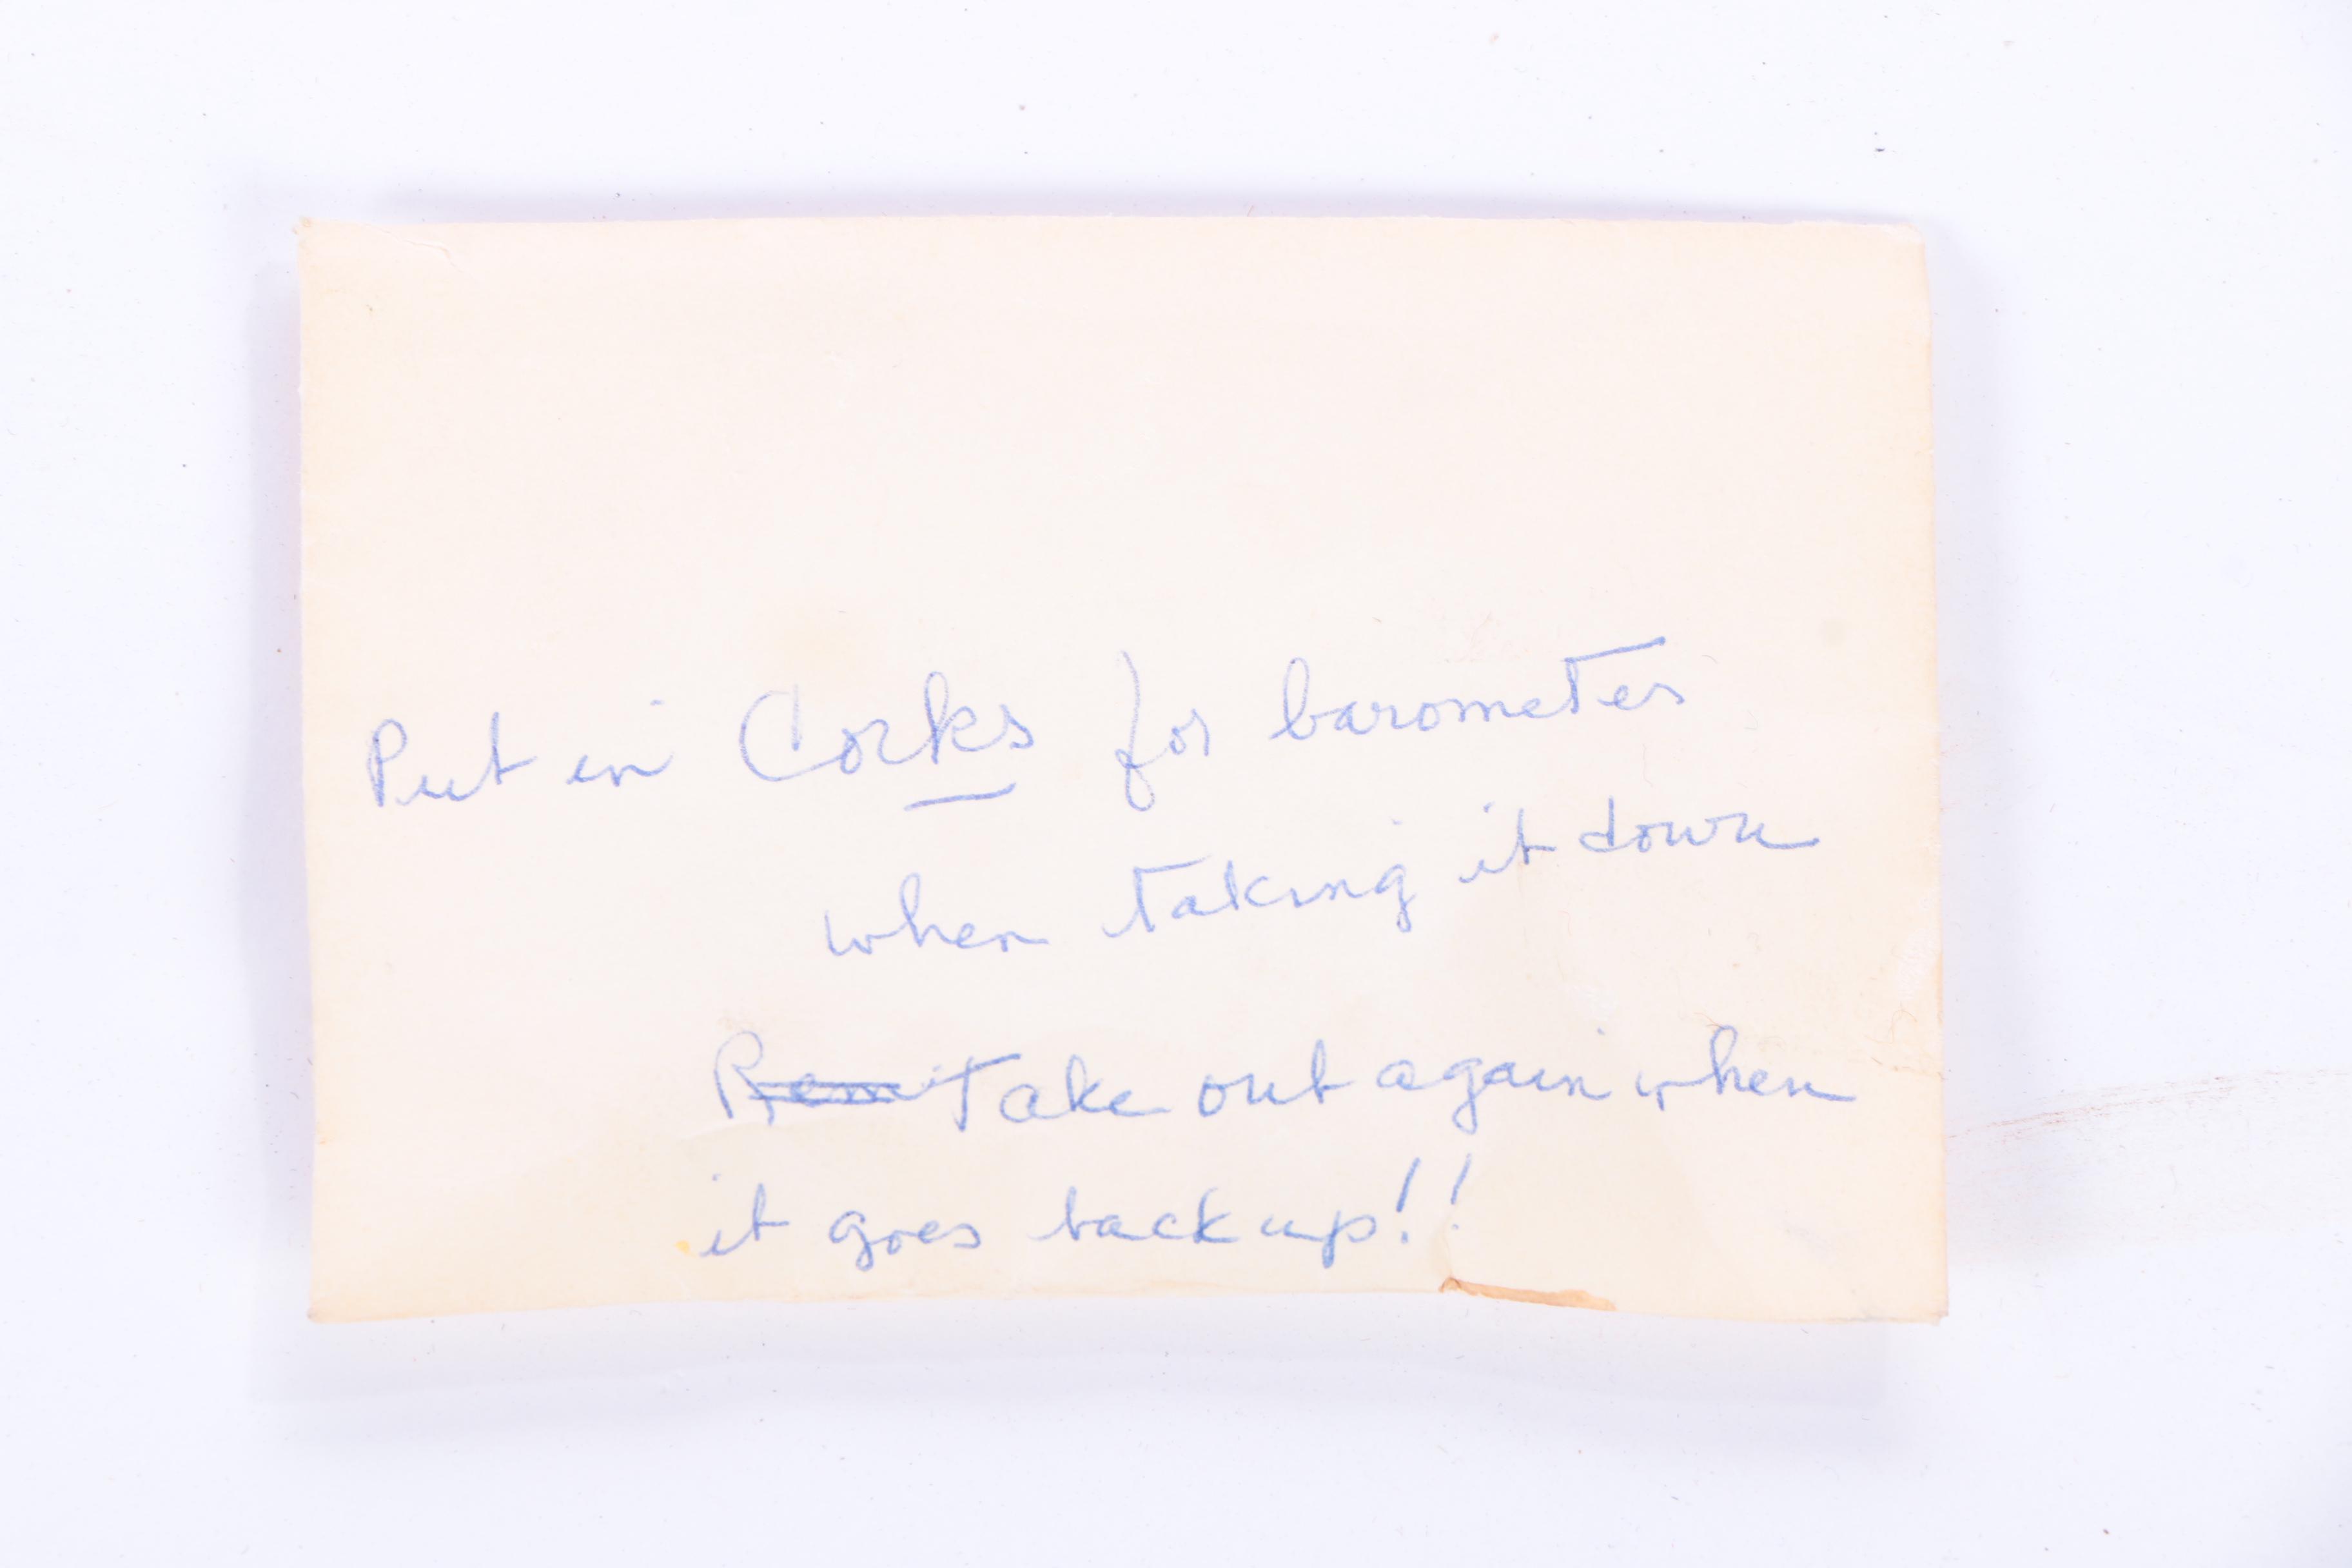 Put in Corks for barometer
when taking it down
Rem Take out again when
it goes back up!!